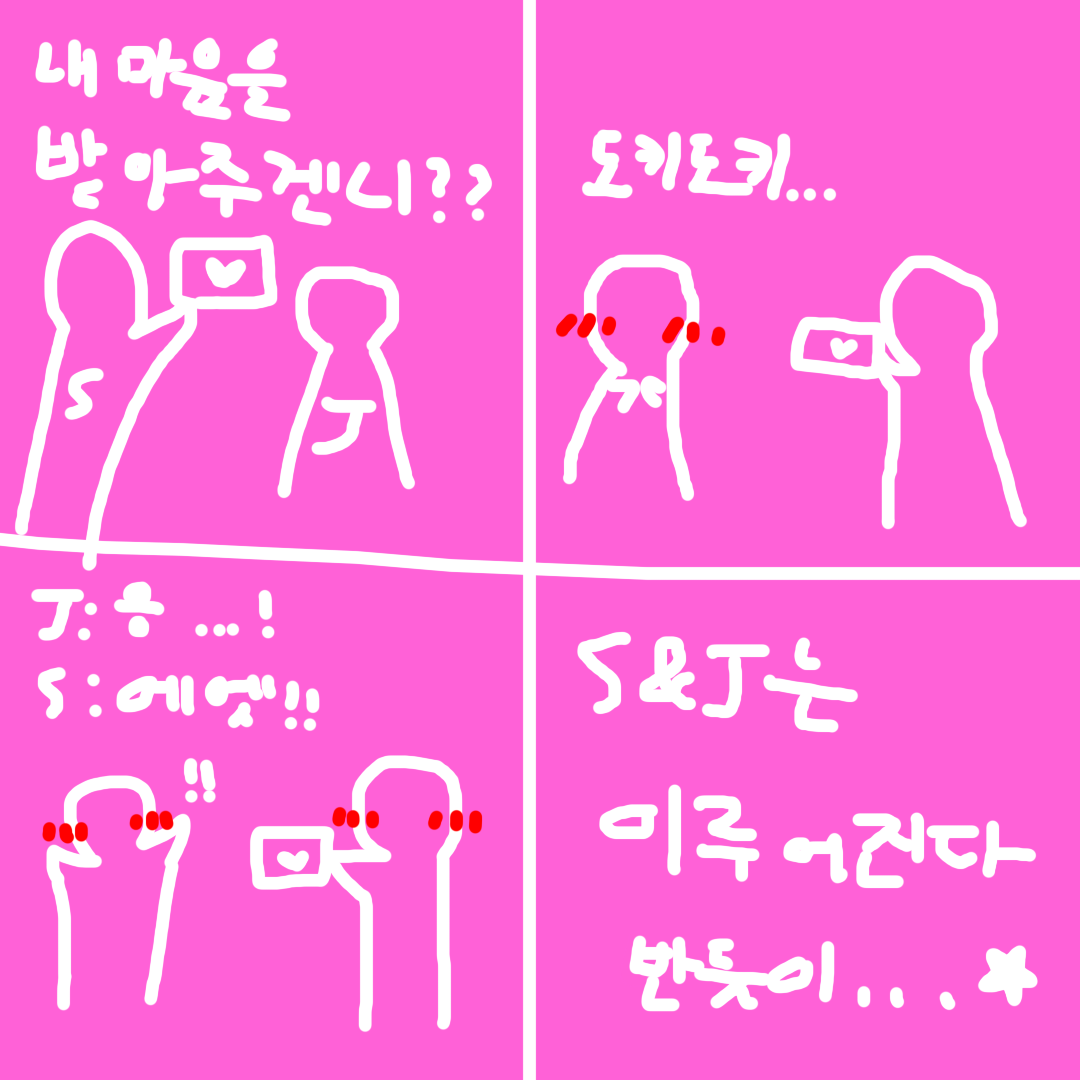 내 마음을
받아주겐니??
S
J
도키도키...
J: 응...!
S: 에엣!!
!!
S&J는
이루어진다
반듯이...